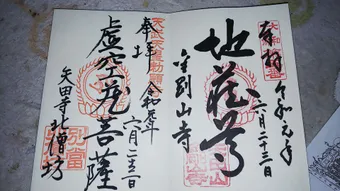 奉拝
令和元年
六月二十三日
地蔵尊
金剛山寺
天武天皇勅願
奉拝
令和元年
六月二三日
虚空蔵菩薩
矢田寺北僧坊